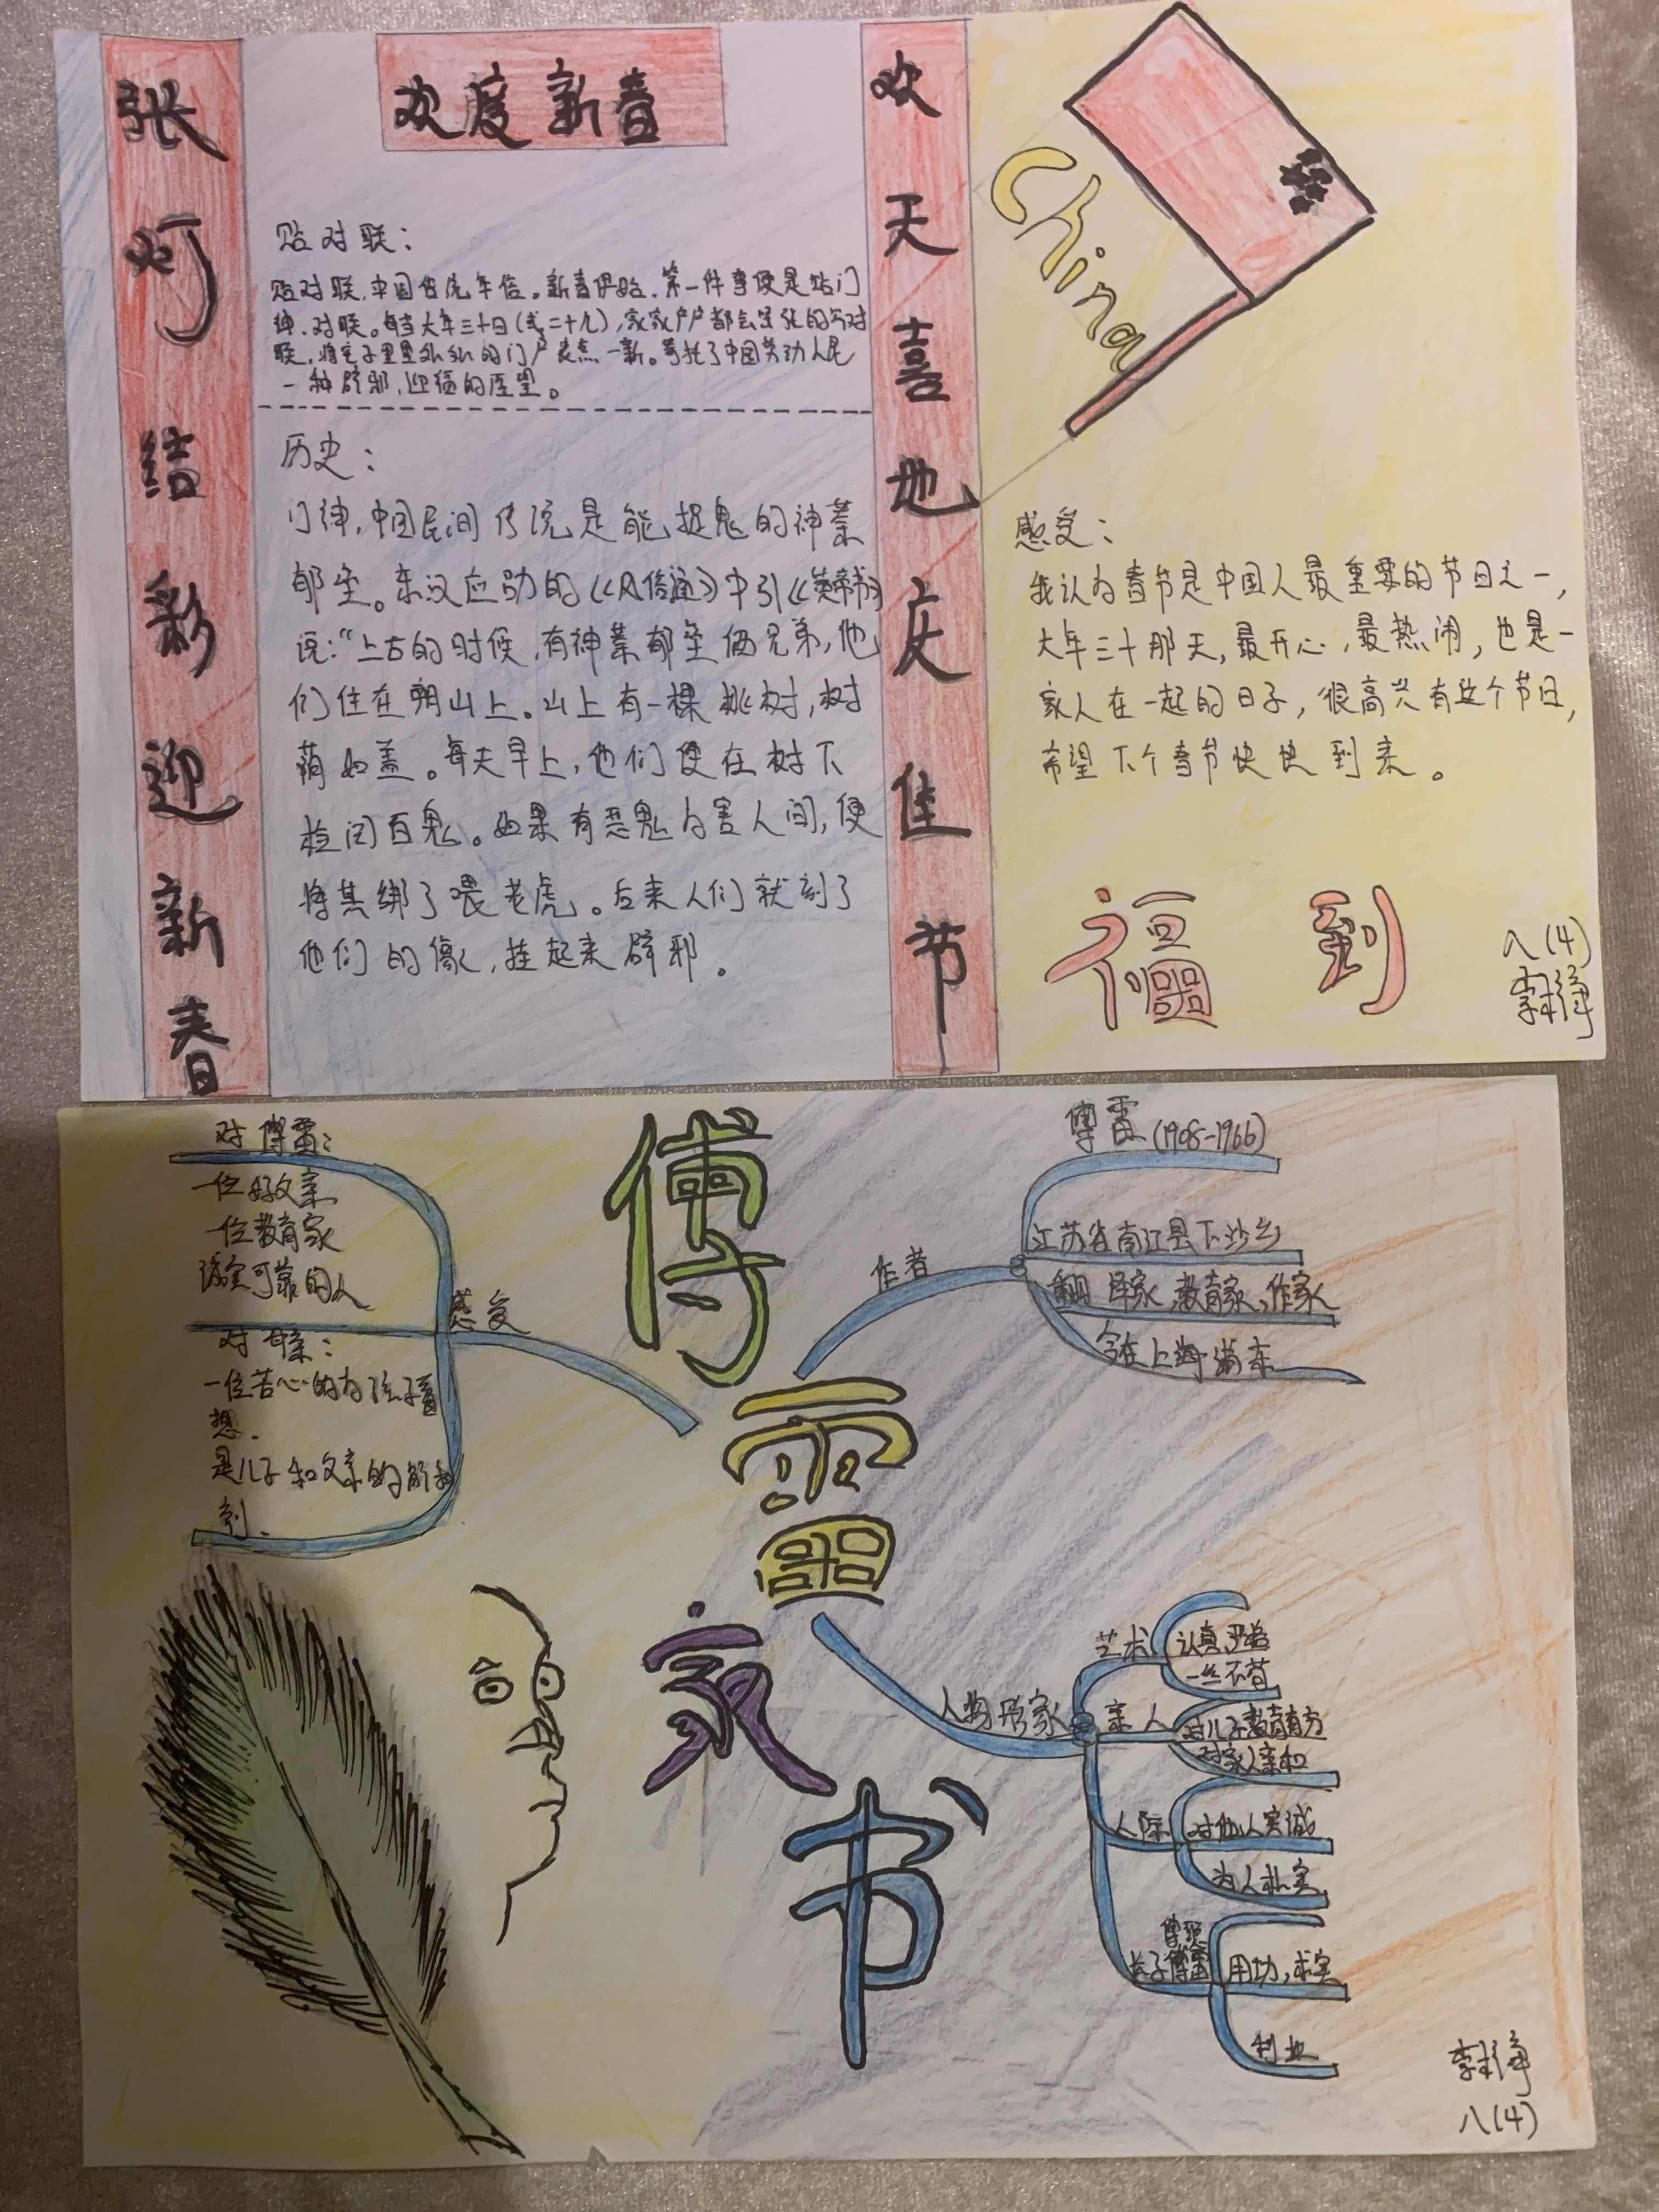 欢度新春
张灯结彩迎新春
贴对联：
贴对联，中国传统年俗。新春伊始，第一件事便是贴门
神、对联。每当大年三十日(或二十九)，家家户户都会
一新。寄托了中国劳动人民
一种辟邪，迎福的愿望。
历史：
门神，中国民间传说是能捉鬼的神荼
郁垒。东汉应劭的《风俗通》中引《黄帝书》
说：“上古的时候，有神荼郁垒俩兄弟，他
们住在朔山上。山上有一棵桃树，树
荫如盖。每天早上，他们便在树下
检阅百鬼。如果有恶鬼为害人间，便
将其绑了喂老虎。后来人们就刻了
他们的像，挂起来辟邪。
欢天喜地庆佳节
China
感受：
我认为春节是中国人最重要的节日之一，
大年三十那天，最开心，最热闹，也是一
家人在一起的日子，很高兴有这个节日，
希望下个春节快快到来。
福到
八(4)
傅雷家书
对傅雷：
一位好父亲
一位教育家
诚实可靠的人
感受
对母亲：
一位苦心的为孩子着
想.
是儿子和父亲的
剂.
作者
傅雷(1908-1966)
江苏省南江县下沙乡
翻译家，教育家，作家
今在上海浦东
人物形家
艺术
认真，严谨
一丝不苟
亲人
对儿子教育有方
对家人亲和
人际
对他人实诚
为人朴实
长子傅雷
用功，求实
八(4)